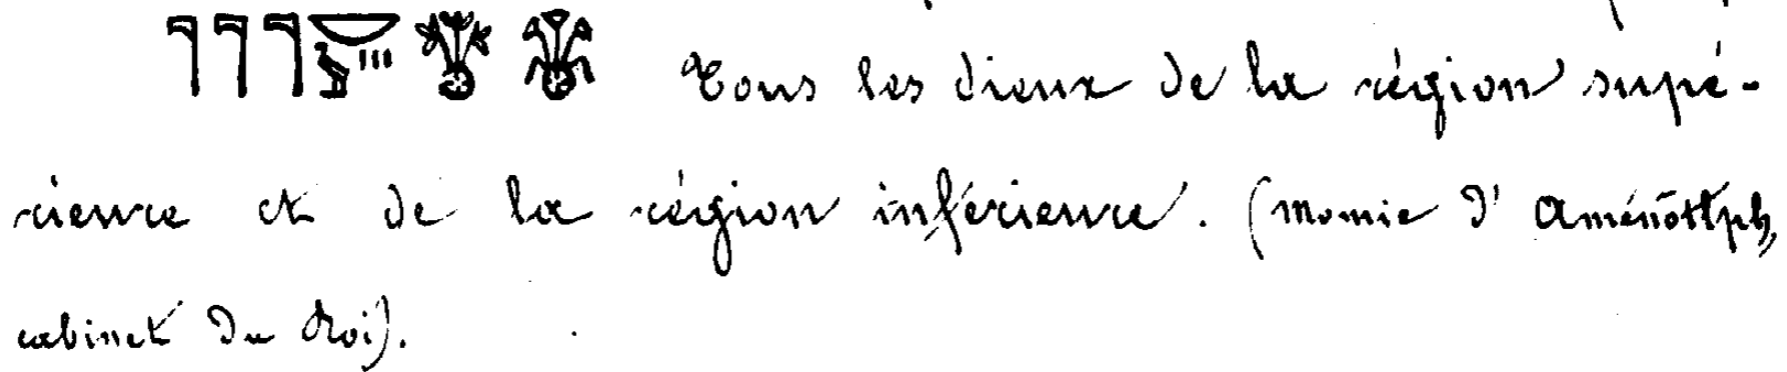 𓊹𓊹𓊹𓎟𓅱𓏥 Tous les dieux de la région supé-
rieure et de la région inférieure. (momie d'Aménôthph,
cabinet du Roi).